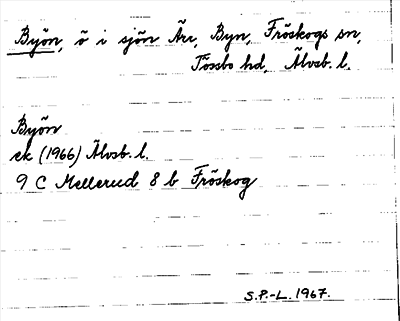 Byön, ö i sjön Ärr, Byn, Fröskogs sn,
Tössbo hd, Älvsb. l.
Byön
ek (1966) Älvsb. l.
9 C Mellerud 8 b Fröskog
S.P.-L. 1967.